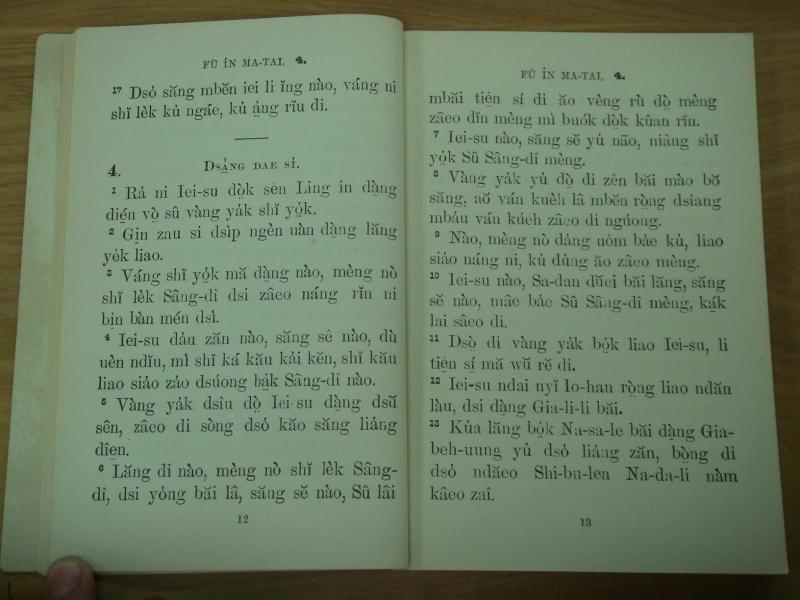 FŬ ÍN MA-TAI, 4.
17 Dsó̱ săng mbĕn iei li ĭng nào, váng ni
shĭ lèk kủ ngáe, kủ ả̱ng rĭu di.
4. DSẢ̱NG DAE SỈ.
1 Rá ni Iei-su dò̱k sên Ling in dà̱ng
dié̱n vò̱ sû vàng yảk shĭ yỏ̱k.
2 Gị̀n zau si dsìp ngèn uàn dà̱ng lăng
yẻk liao.
3 Váng shĭ yỏ̱k mă dà̱ng nào, mèng nò
shĭ lèk Sâng-dî dsi zâeo náng rĭn ni
bị̀n bàn mén dsì.
4 Iei-su dảu zăn nào, săng sê nào, dù
uèn ndĭu, mì shĭ ká kău kải kĕn, shĭ kău
liao siảo zảo dsúong bả̱k Sâng-dî nào.
5 Vàng yảk dsiu dò̱ Iei-su dà̱ng dsŭ
sên, zâeo di sòng dsó̱ kăo săng liảng
dîe̱n.
6 Lăng di nào, mèng nò shĭ lèk Sâng-
dî, dsi yóng băi lâ, săng sĕ nào, Sû lâi
12
FŬ ÍN MA-TAI, 4.
mbăi tiê̱n sí̱ di ăo vèng rù dò̱ mèng
zâeo dĭn mèng mì buók dò̱k kûan rĭn.
7 Iei-su nào, săng sĕ yủ năo, niâng shĭ
yỏ̱k Sû Sâng-dî mèng.
8 Vàng yảk yủ dò̱ di zên băi mào bŏ
săng, aŏ ván kuèh lâ mbĕn rò̱ng dsiang
mbáu ván kúeh zâeo di ngúong.
9 Nào, mèng nò dáng uôm bảe kủ, liao
siảo náng ni, kủ dủng ăo zâeo mèng.
10 Iei-su nào, Sa-dan dŭei băi lăng, săng
sĕ nào, mâc bảe Sû Sâng-dî mèng, kả̱k
lai sâeo di.
11 Dsò̱ di vàng yảk bỏ̱k liao Iei-su, li
tiê̱n sí̱ mă wŭ rĕ di.
12 Iei-su ndai nyĭ Io-han rò̱ng liao ndăn
làu, dsi dà̱ng Gia-li-li băi.
13 Kủa lăng bỏ̱k Na-sa-le băi dà̱ng Gia-
beh-uung yủ dsó̱ liảng zăn, bò̱ng di
dsó̱ ndăeo Shi-bu-len Na-da-li nàm
kâeo zaî.
13